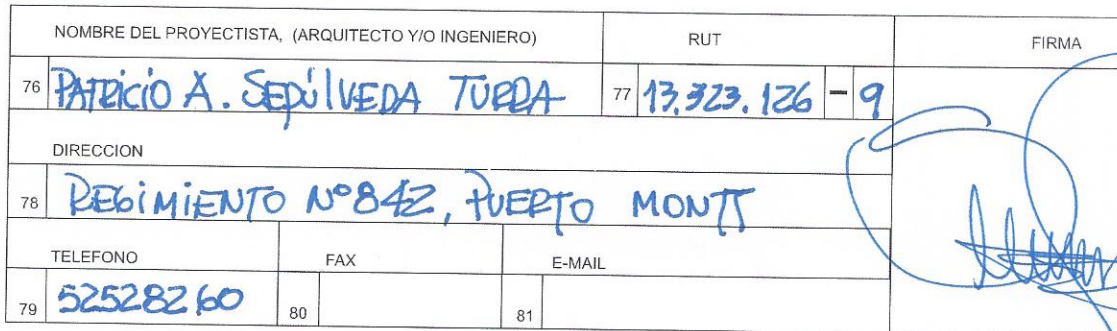 NOMBRE DEL PROYECTISTA, (ARQUITECTO Y/O INGENIERO) RUT FIRMA
76 PATRICIO A. SEPÚLVEDA TURRA 77 13.323.126 - 9
DIRECCION
78 REGIMIENTO Nº842, PUERTO MONTT
TELEFONO FAX E-MAIL
79 52528260 80 81